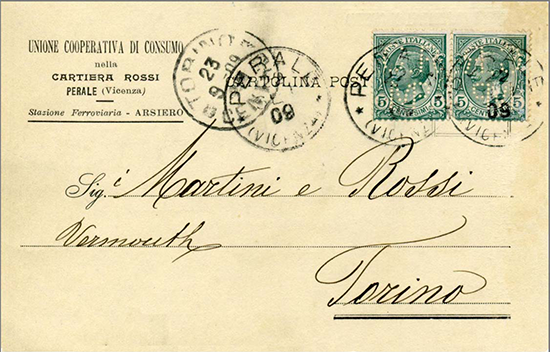 UNIONE COOPERATIVA DI CONSUMO
nella
CARTIERA ROSSI
PERALE (Vicenza)
Stazione Ferroviaria - ARSIERO
TORINO
23
9 09
PERALE
09
(VICENZA)
CARTOLINA POST
POSTE ITALIANE
5 5
POSTE ITALIANE
5 5
PE
(VICENZA)
09
Sig.i Martini e Rossi
Vermouth
Torino